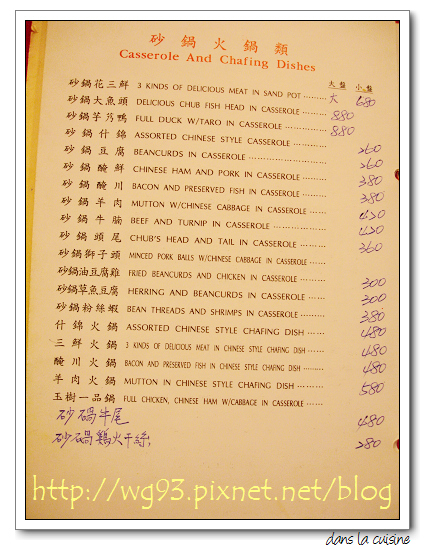 砂鍋火鍋類
Casserole And Chafing Dishes
大盤 小盤
砂鍋花三鮮 3 KINDS OF DELICIOUS MEAT IN SAND POT ......... 大 680
砂鍋大魚頭 DELICIOUS CHUB FISH HEAD IN CASSEROLE ......... 880
砂鍋芋艿鴨 FULL DUCK W/TARO IN CASSEROLE ............... 880
砂鍋什錦 ASSORTED CHINESE STYLE CASSEROLE ............... 260
砂鍋豆腐 BEANCURDS IN CASSEROLE ........................ 260
砂鍋醃鮮 CHINESE HAM AND PORK IN CASSEROLE ............ 380
砂鍋醃川 BACON AND PRESERVED FISH IN CASSEROLE ...... 380
砂鍋羊肉 MUTTON W/CHINESE CABBAGE IN CASSEROLE ...... 420
砂鍋牛腩 BEEF AND TURNIP IN CASSEROLE ............... 420
砂鍋頭尾 CHUB'S HEAD AND TAIL IN CASSEROLE ......... 360
砂鍋獅子頭 MINCED PORK BALLS W/CHINESE CABBAGE IN CASSEROLE ......
砂鍋油豆腐雞 FRIED BEANCURDS AND CHICKEN IN CASSEROLE ...... 300
砂鍋草魚豆腐 HERRING AND BEANCURDS IN CASSEROLE ...... 300
砂鍋粉絲蝦 BEAN THREADS AND SHRIMPS IN CASSEROLE ...... 380
什錦火鍋 ASSORTED CHINESE STYLE CHAFING DISH ...... 480
三鮮火鍋 3 KINDS OF DELICIOUS MEAT IN CHINESE STYLE CHAFING DISH ...... 480
醃川火鍋 BACON AND PRESERVED FISH IN CHINESE STYLE CHAFING DISH ...... 480
羊肉火鍋 MUTTON IN CHINESE STYLE CHAFING DISH ......... 580
玉樹一品鍋 FULL CHICKEN, CHINESE HAM W/CABBAGE IN CASSEROLE ......
砂鍋牛尾 480
砂鍋鷄火干絲 280
http://wg93.pixnet.net/blog
dans la cuisine